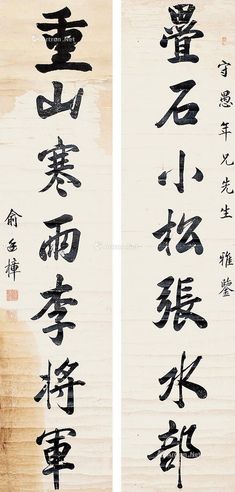 守愚年兄先生 雅鑒
疊石小松張水部
重山寒雨李將軍
俞函樟